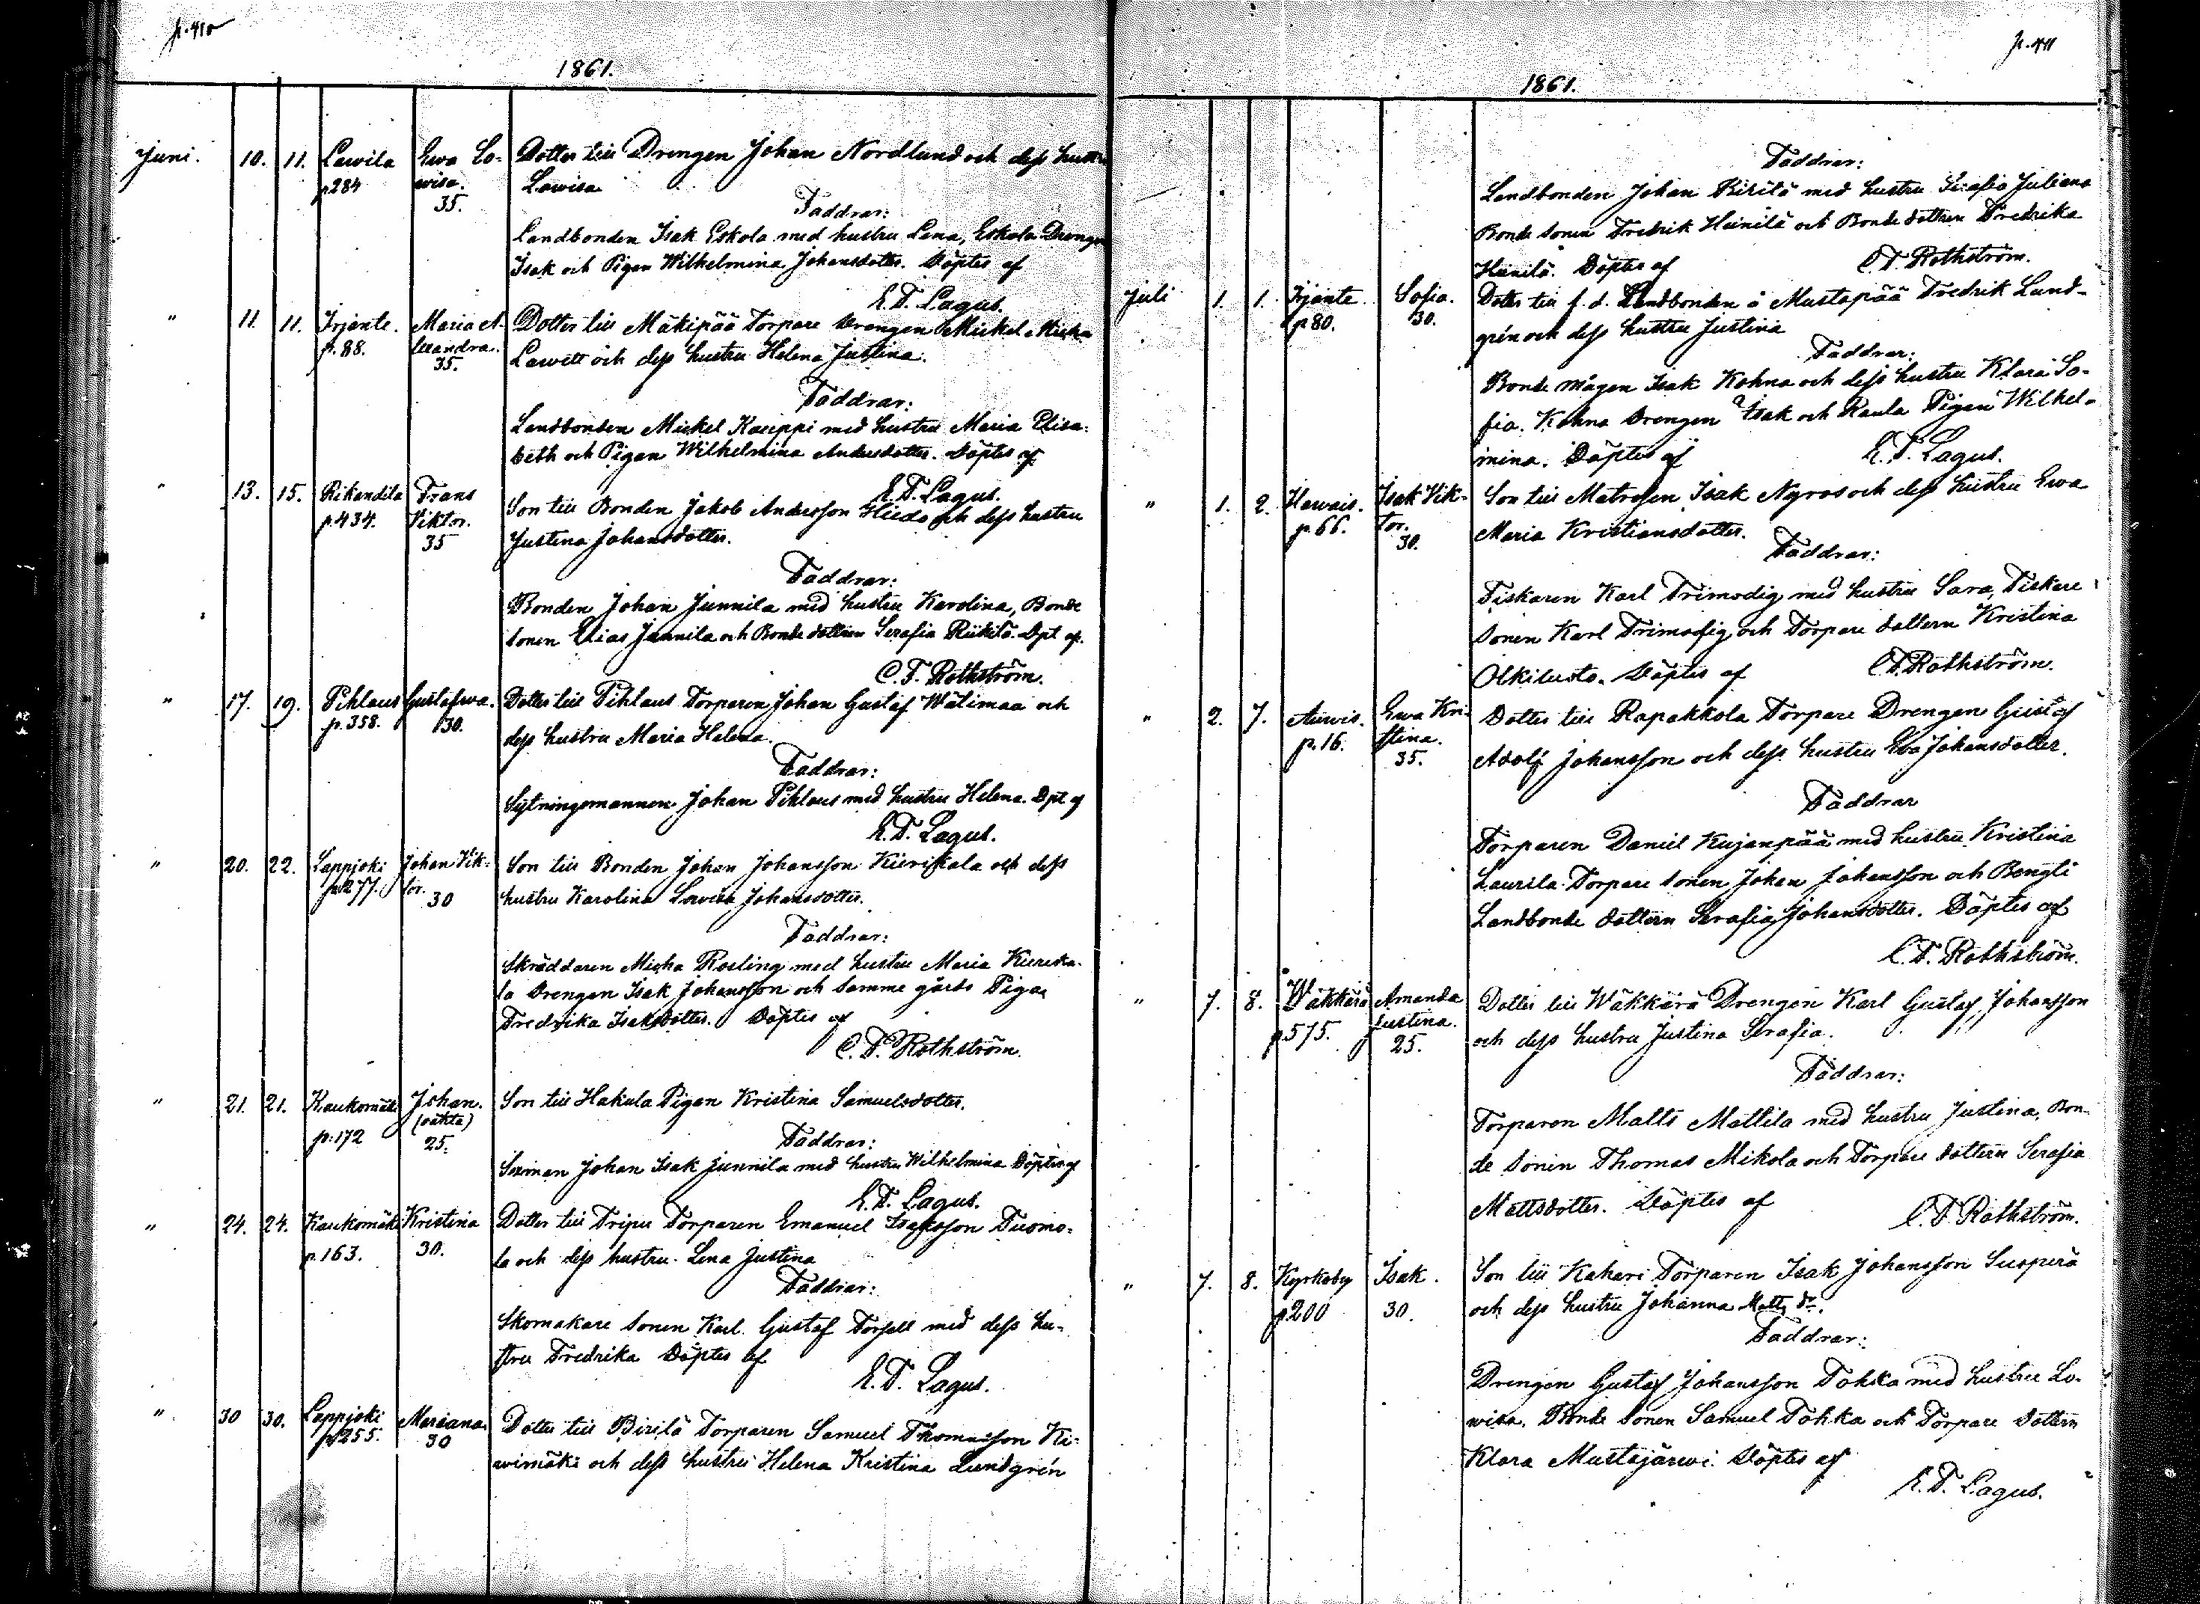 p. 410
1861.
Juni. 10. 11. Lawila Ewa Lo- Dotter till Drengen Johan Nordlund och dess hustru
p 284 wisa. Lowisa
35. Faddrar:
Landbonden Isak Eskola med hustru Lena, Eskola Drengen
Isak och Pigan Wilhelmina Johansdotter. Döptes af
E. F. Lagus.
" 11. 11. Irjante. Maria A- Dotter till Mäkipää Torpare Drengen Mickel
p. 88. lexandra. Lawitt och dess hustru Helena Justina.
35.
Faddrar:
Landbonden Mickel Kaseppi med hustru Maria Elisa-
beth och Pigan Wilhelmina Andersdotter. Döptes af
E. F. Lagus.
" 13. 15. Rikandila Frans Son till Bonden Jakob Andersson Hiedo och dess hustru
p 434. Viktor. Justina Johansdotter.
35
Faddrar:
Bonden Johan Junnila med hustru Karolina, Bonde
sonen Elias Junnila och Bonde dottern Serafia Rükilä. Dpt af.
C. F. Rothström.
" 17. 19. Pihlaus Gustafwa. Dotter till Pihlaus Torparen Johan Gustaf Wälimaa och
p. 358. 30. dess hustru Maria Helena.
Faddrar:
Sytningsmannen Johan Pihlaus med hustru Helena. Dpt af
E. F. Lagus.
" 20. 22. Lappjoki Johan Vik- Son till Bonden Johan Johansson Kierikala och dess
p 277. tor. 30 hustru Karolina Lowisa Johansdotter.
Faddrar:
Skräddaren Micha Rosling med hustru Maria Kierika-
la Drengen Isak Johansson och samme gårds Piga
Fredrika Isaksdotter. Döptes af
C. F. Rothström.
" 21. 21. Kaukomäki Johan. Son till Hakula Pigan Kristina Samuelsdotter.
p. 172 (oäkta)
25. Faddrar:
Johan Isak Junnila med hustru Wilhelmina Döptes af
E. F. Lagus.
" 24. 24. Kaukomäki Kristina Dotter till Torparen Emanuel Isaksson Tuomo-
p. 163. 30. la och dess hustru Lena Justina
Faddrar:
Skomakare sonen Karl Gustaf Torsell med dess hu-
stru Fredrika Döptes af
E. F. Lagus.
" 30 30. Lappjoki Mariana. Dotter till Birilä Torparen Samuel Thomasson Ki-
p 255. 30 wimäki och dess hustru Helena Kristina Lundgrén
p. 411
1861.
Faddrar:
Landbonden Johan Birilä med hustru Serafia Juliana
Bonde sonen Fredrik Heinilä och Bonde dottern Fredrika
Heinilä. Döptes af C. F. Rothström.
Juli 1. 1. Irjante. Sofia. Dotter till f. d. Landbonden å Mustapää Fredrik Lund-
p 80. 30. grén och dess hustru Justina
Faddrar:
Bonde mågen Isak Kohna och dess hustru Klara So-
fia. Kohna Drengen Isak och Raula Pigan Wilhel-
mina. Döptes af E. F. Lagus.
" 1. 2. Hawais. Isak Vik- Son till Matrosen Isak Nyroos och dess hustru Ewa
p. 66. tor. Maria Kristiansdotter.
30. Faddrar:
Fiskaren Karl Frimodig med hustru Sara, Fiskare
sonen Karl Frimodig och Torpare dottern Kristina
Olkiluoto. Döptes af C. F. Rothström.
" 2. 7. Auwis. Ewa Kri- Dotter till Rapakkola Torpare Drengen Gustaf
p. 16. stina. Adolf Johansson och dess hustru Ewa Johansdotter.
35.
Faddrar
Torparen Daniel Kujanpää med hustru Kristina
Laurila Torpare sonen Johan Johansson och Bengti
Landbonde dottern Serafia Johansdotter. Döptes af
C. F. Rothström.
" 7. 8. Wäkkärä Amanda Dotter till Wäkkärä Drengen Karl Gustaf Johansson
p 575. Justina. och dess hustru Justina Serafia.
25.
Faddrar:
Torparen Matts Mattila med hustru Justina, Bon-
de sonen Thomas Mikola och Torpare dottern Serafia
Mattsdotter. Döptes af C. F. Rothström.
" 7. 8. Kyrkoby Isak. Son till Kahari Torparen Isak Johansson Suoperä
p 200 30. och dess hustru Johanna Matts dr.
Faddrar:
Drengen Gustaf Johansson Tokka med hustru Lo-
wisa. Bonde sonen Samuel Tokka och Torpare dottern
Klara Mustajärwi. Döptes af
E. F. Lagus.